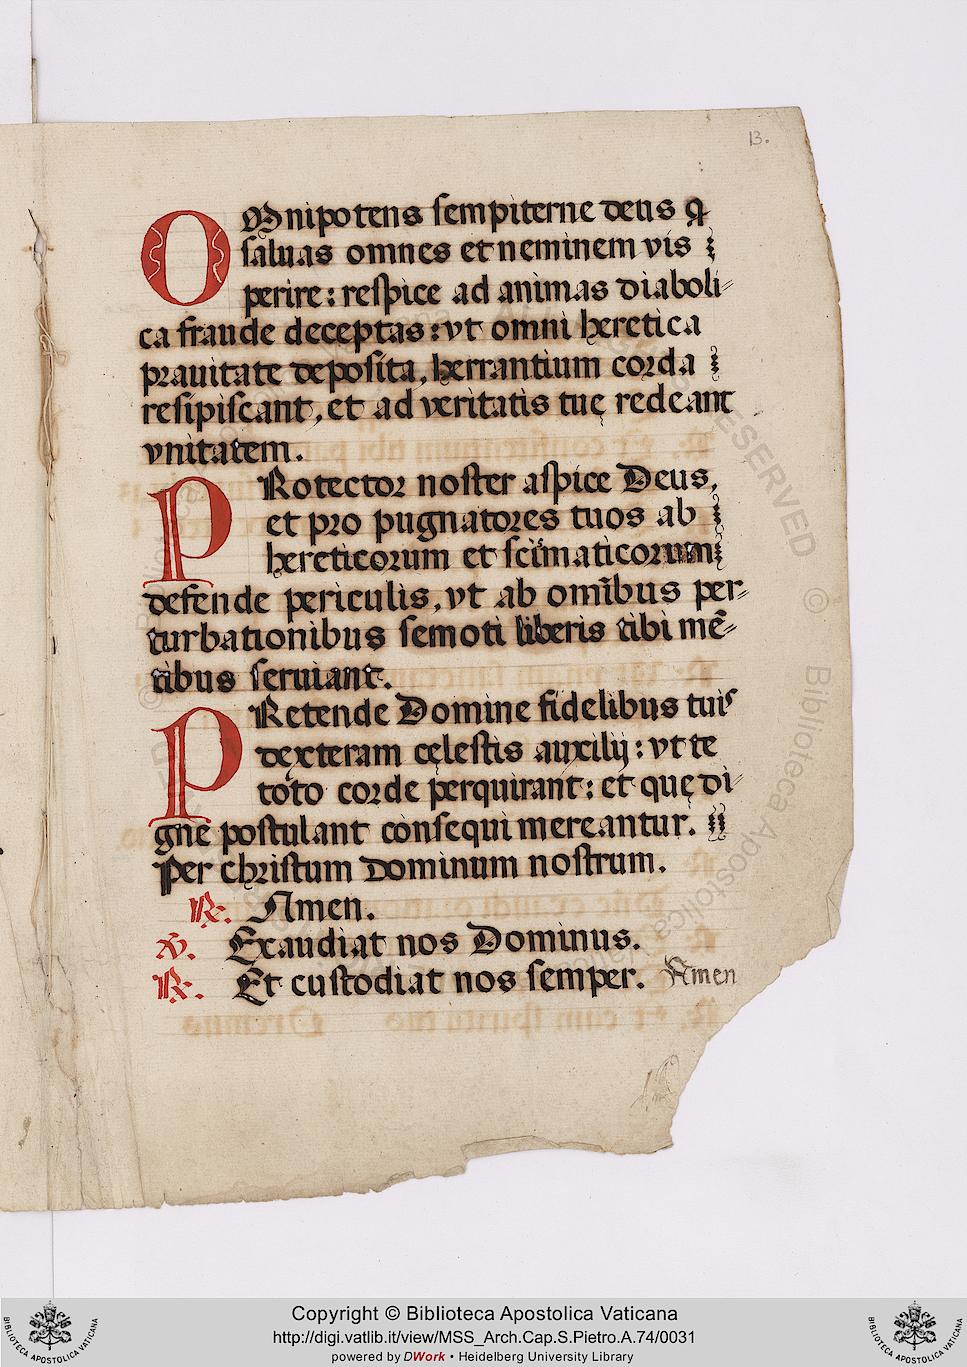 13.
OMnipotens sempiterne deus ꝙ
saluas omnes et neminem vis
perire: respice ad animas diaboli⸗
ca fraude deceptas: vt omni heretica
prauitate deposita, herrantium corda
resipiscant, et ad veritatis tuę redeant
vnitatem.
PRotector noster aspice Deus,
et pro pugnatores tuos ab
hereticorum et scismaticorum
defende periculis, vt ab omībus per⸗
turbationibus semoti liberis tibi mē⸗
tibus seruiant.
PRetende Domine fidelibus tuis
dexteram cęlestis auxilij: vt te
toto corde perquirant: et quę di⸗
gne postulant consequi mereantur.
Per christum dominum nostrum.
℟. Amen.
℣. Exaudiat nos Dominus.
℟. Et custodiat nos semper. Amen
Copyright © Biblioteca Apostolica Vaticana
http://digi.vatlib.it/view/MSS_Arch.Cap.S.Pietro.A.74/0031
powered by DWork • Heidelberg University Library